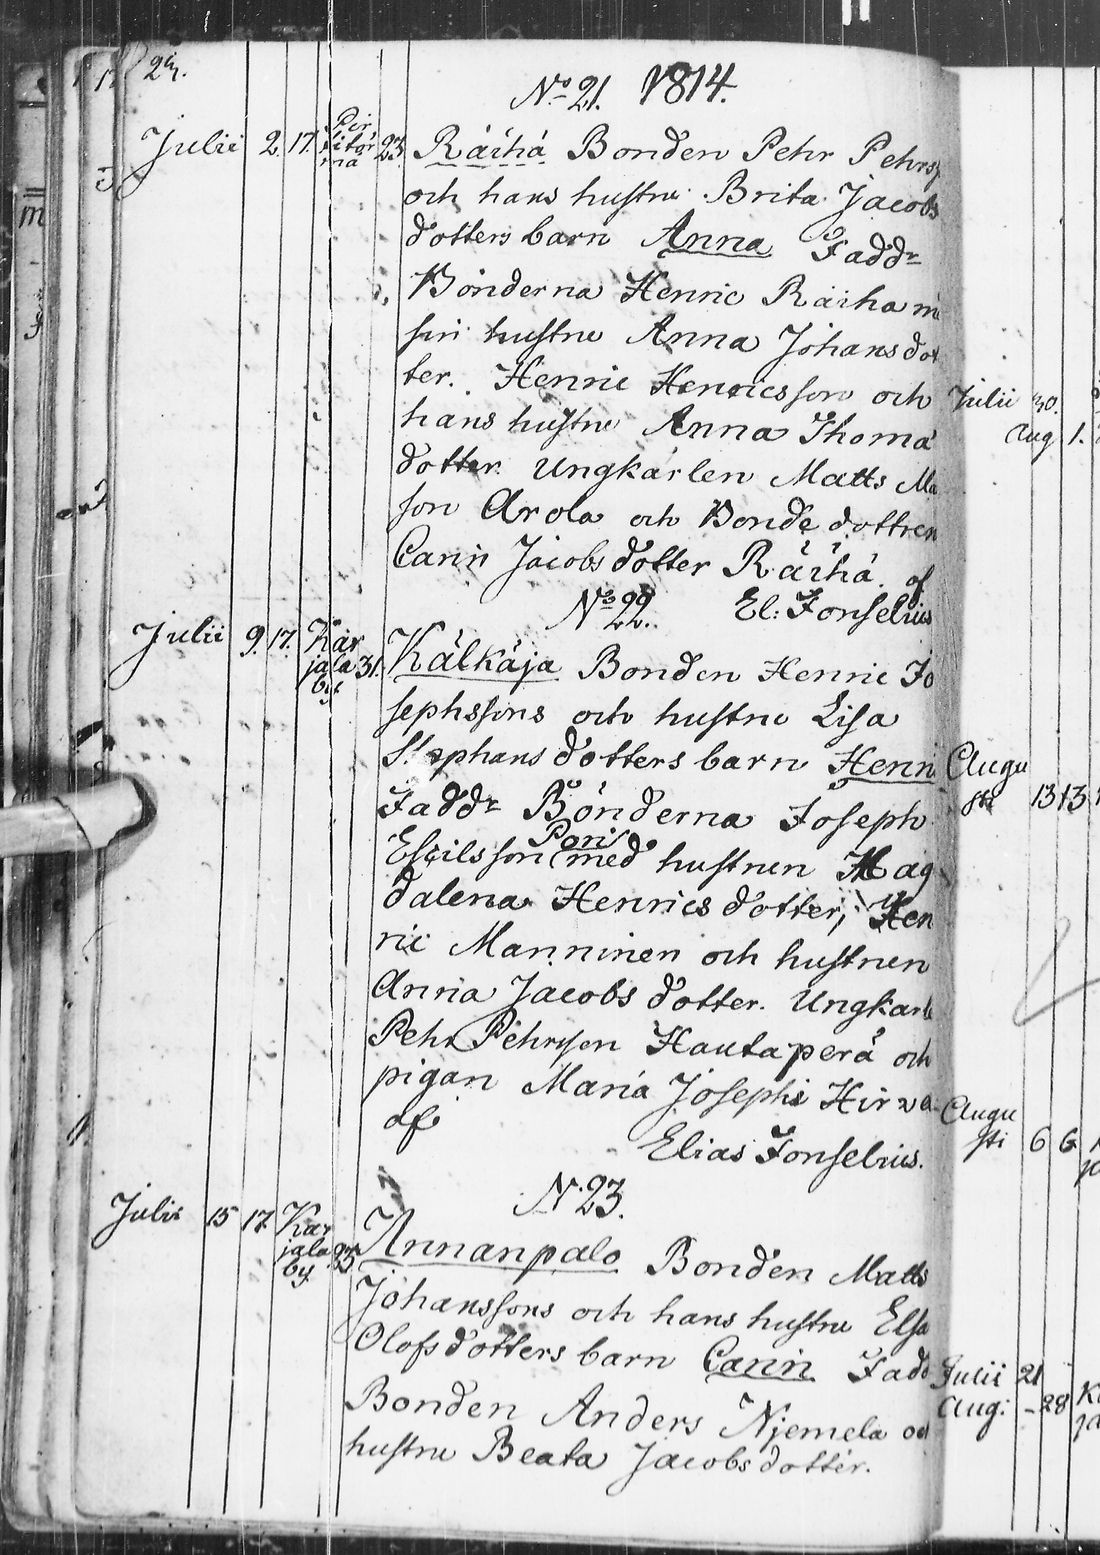 24.
No 21. 1814.
Julii 2. 17. Pir
titör
mä 23. Räihä Bonden Pehr Pehrs
och hans hustru Brita Jacobs
dotters barn Anna Faddr
Bönderna Henric Räiha m
sin hustru Anna Johans dot
ter. Henric Henricsson och
hans hustru Anna Thoma
dotter. Ungkarlen Matts Ma
son Arola och Bonde dottren
Carin Jacobs dotter Räihä. af
El: Fonselius
No 22.
Julii 9. 17. Kar
jala
by 31. Kälkäja Bonden Henric Jo
sephssons och hustru Lisa
Stephans dotters barn Henri
Faddr Bönderna Joseph
Eskilsson Pori med hustrun Mag
dalena Henrics dotter, Hen
ric Manninen och hustrun
Anna Jacobs dotter. Ungkarl
Pehr Pehrsson Hautaperä och
pigan Maria Josephs Hirva
af
Elias Fonselius.
N. 23.
Julii 15 17. Kar
jala
by 35 Annanpalo Bonden Matts
Johanssons och hans hustru Elsa
Olofs dotters barn Carin Fadd
Bonden Anders Njemela och
hustru Beata Jacobs dotter.
Julii 30.
Aug 1.
Augu
sti 13 13
Augu
sti 6 6
Julii 21
Aug: - 28